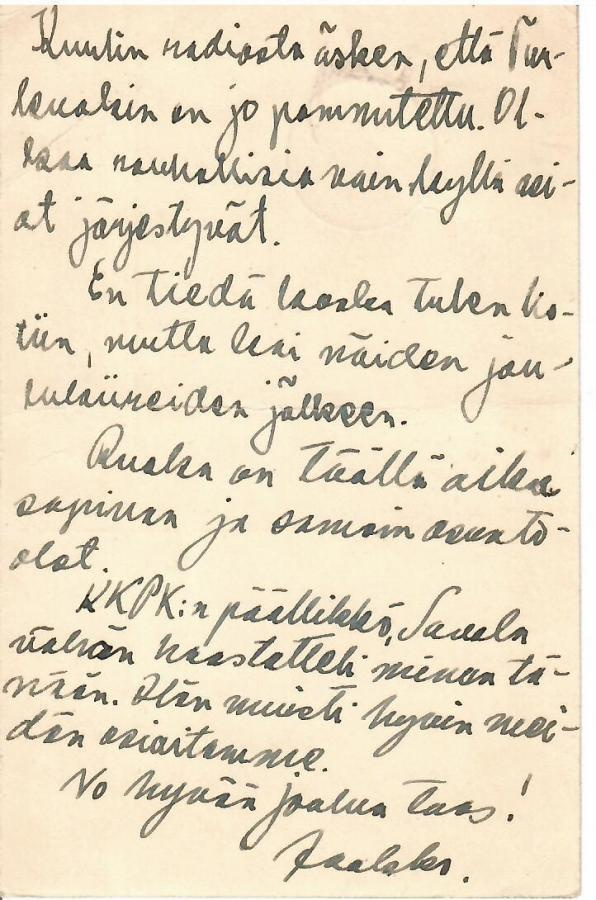 Kuulin radiosta äsken, että Tur-
kuakin on jo pommitettu. Ol-
kaa rauhallisia vain kyllä asi-
at järjestyvät.
En tiedä koska tulen ko-
tiin, mutta kai näiden jou-
lukiireiden jälkeen.
Ruoka on täällä aika
sopivan ja samoin asunto-
olot.
KKPK:n päällikkö, Savola
vähän haastatteli minua tä-
nään. Hän muisti hyvin mei-
dän asiaitamme.
No hyvää joulua taas!
Jaakko.